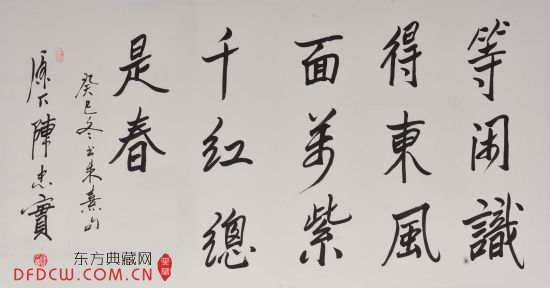 等闲識
得東風
面萬紫
千红總
是春
癸巳冬书朱熹句
原下陳忠實
东方典藏网
DFDCW.COM.CN